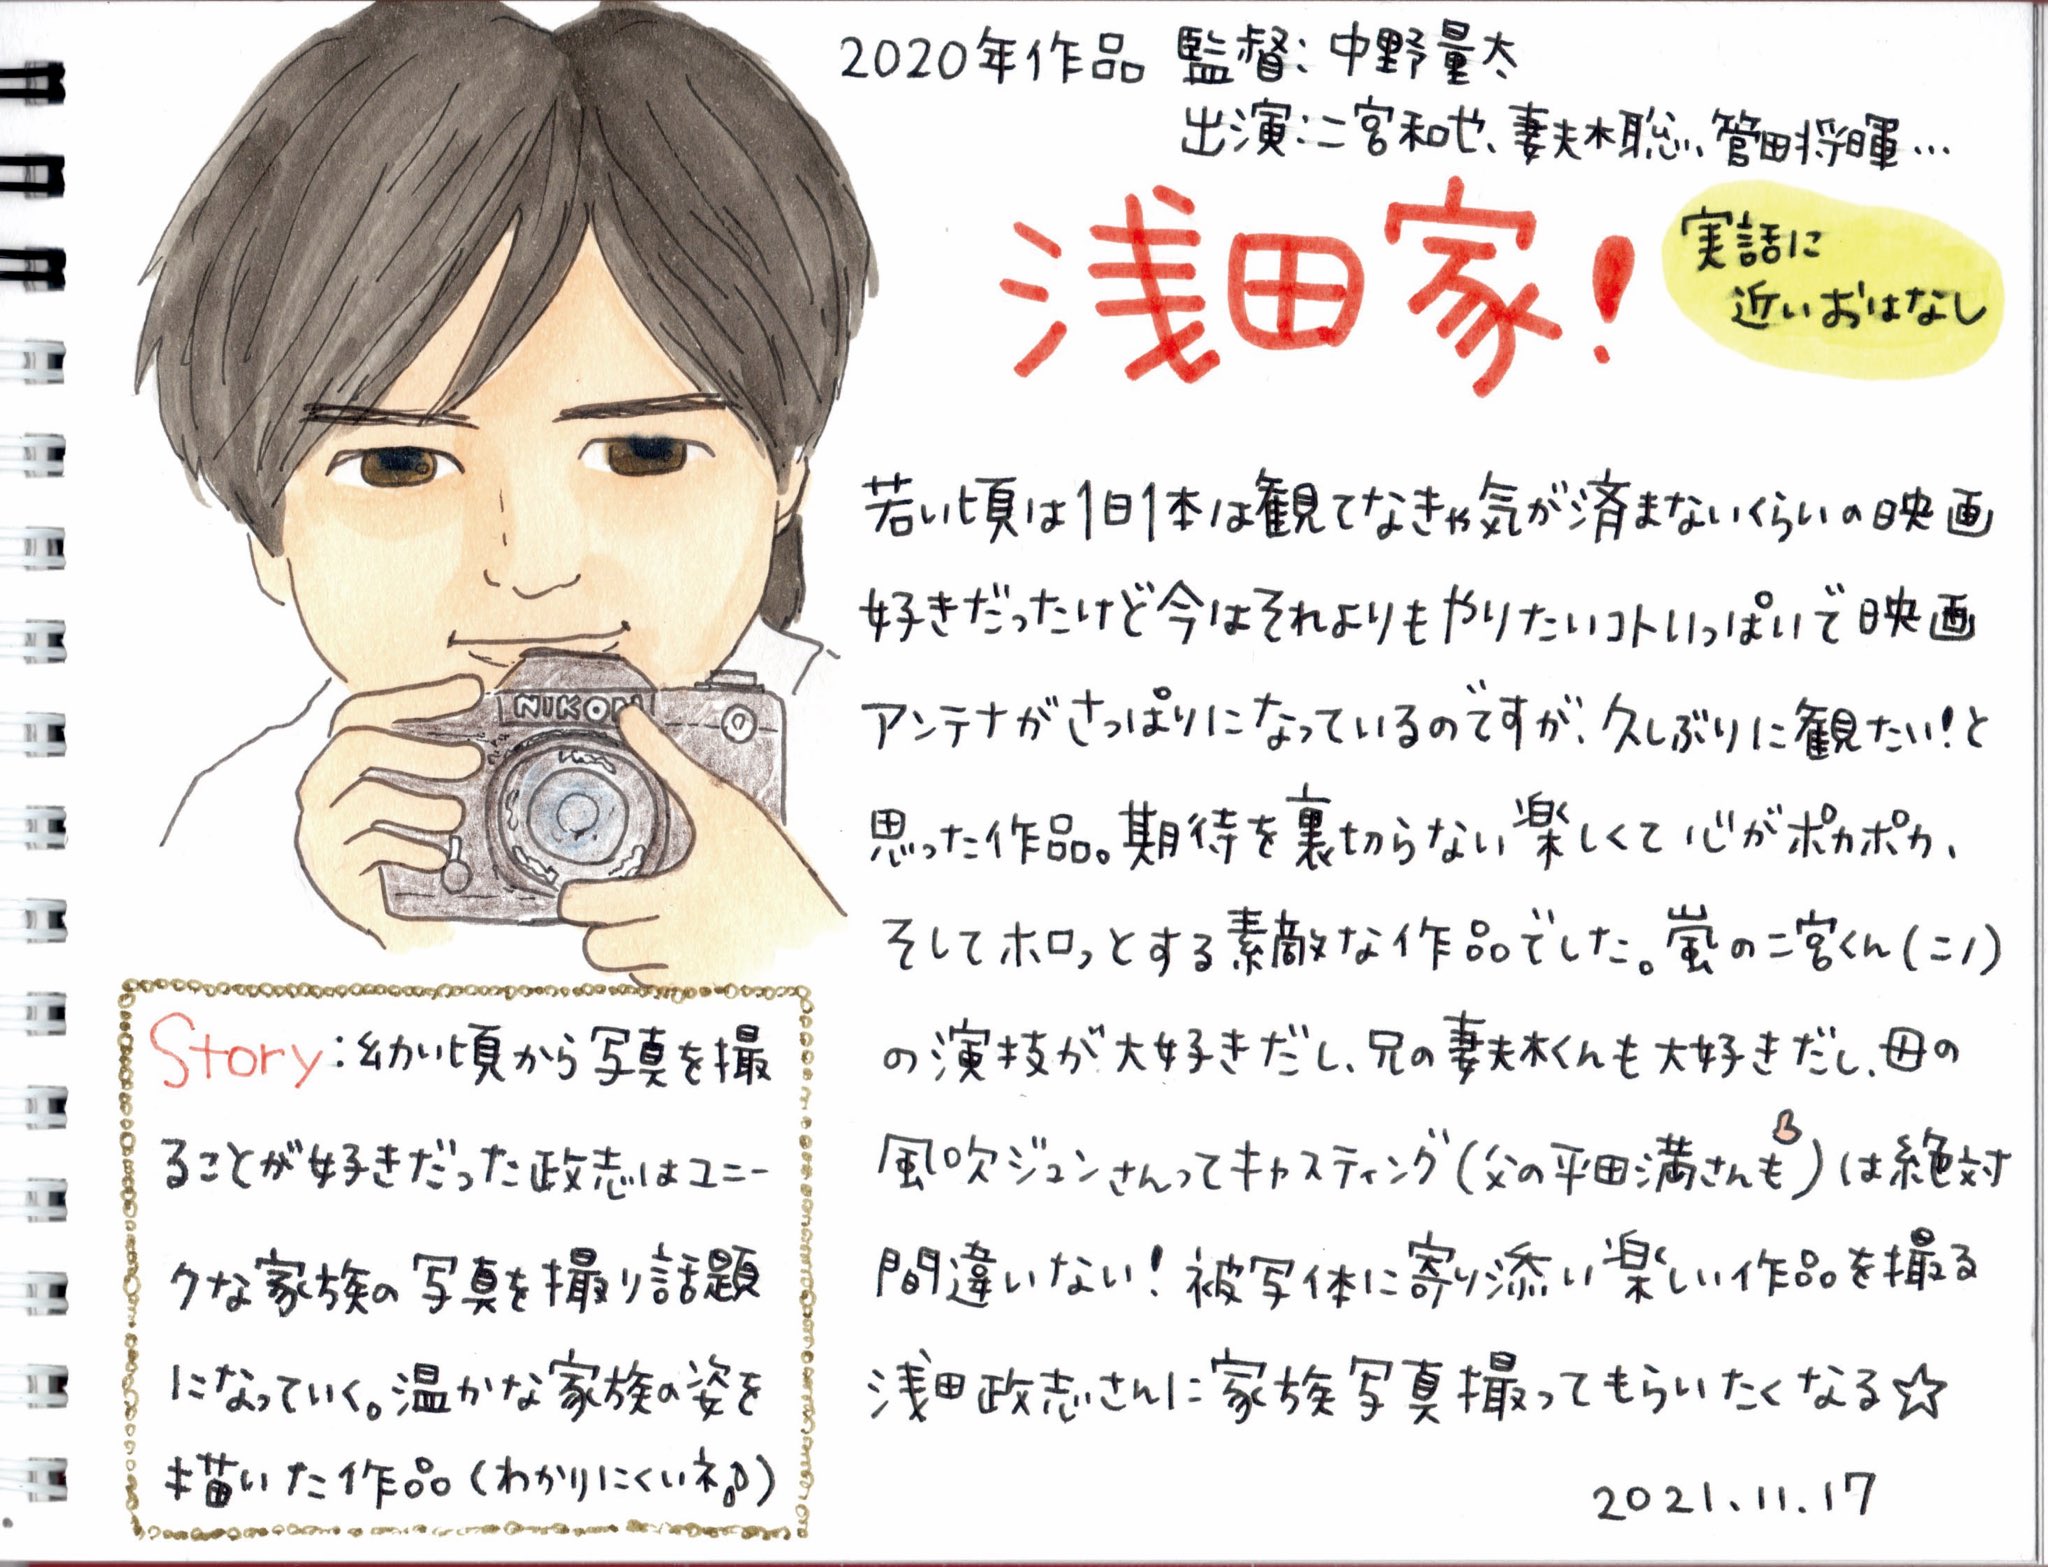 2020年作品 監督：中野量太
出演：二宮和也、妻夫木聡、管田将暉…
浅田家！
実話に
近いおはなし
若い頃は1日1本は観てなきゃ気が済まないくらいの映画
好きだったけど今はそれよりもやりたいコトいっぱいで映画
アンテナがさっぱりになっているのですが、久しぶりに観たい！と
思った作品。期待を裏切らない楽しくて心がポカポカ、
そしてホロっとする素敵な作品でした。嵐の二宮くん(ニノ)
の演技が大好きだし、兄の妻夫木くんも大好きだし、母の
風吹ジュンさんってキャスティング(父の平田満さんも)は絶対
間違いない！被写体に寄り添い楽しい作品を撮る
浅田政志さんに家族写真撮ってもらいたくなる☆
2021.11.17
NIKON
Story：幼い頃から写真を撮
ることが好きだった政志はユニー
クな家族の写真を撮り話題
になっていく。温かな家族の姿を
描いた作品(わかりにくいネ♪)